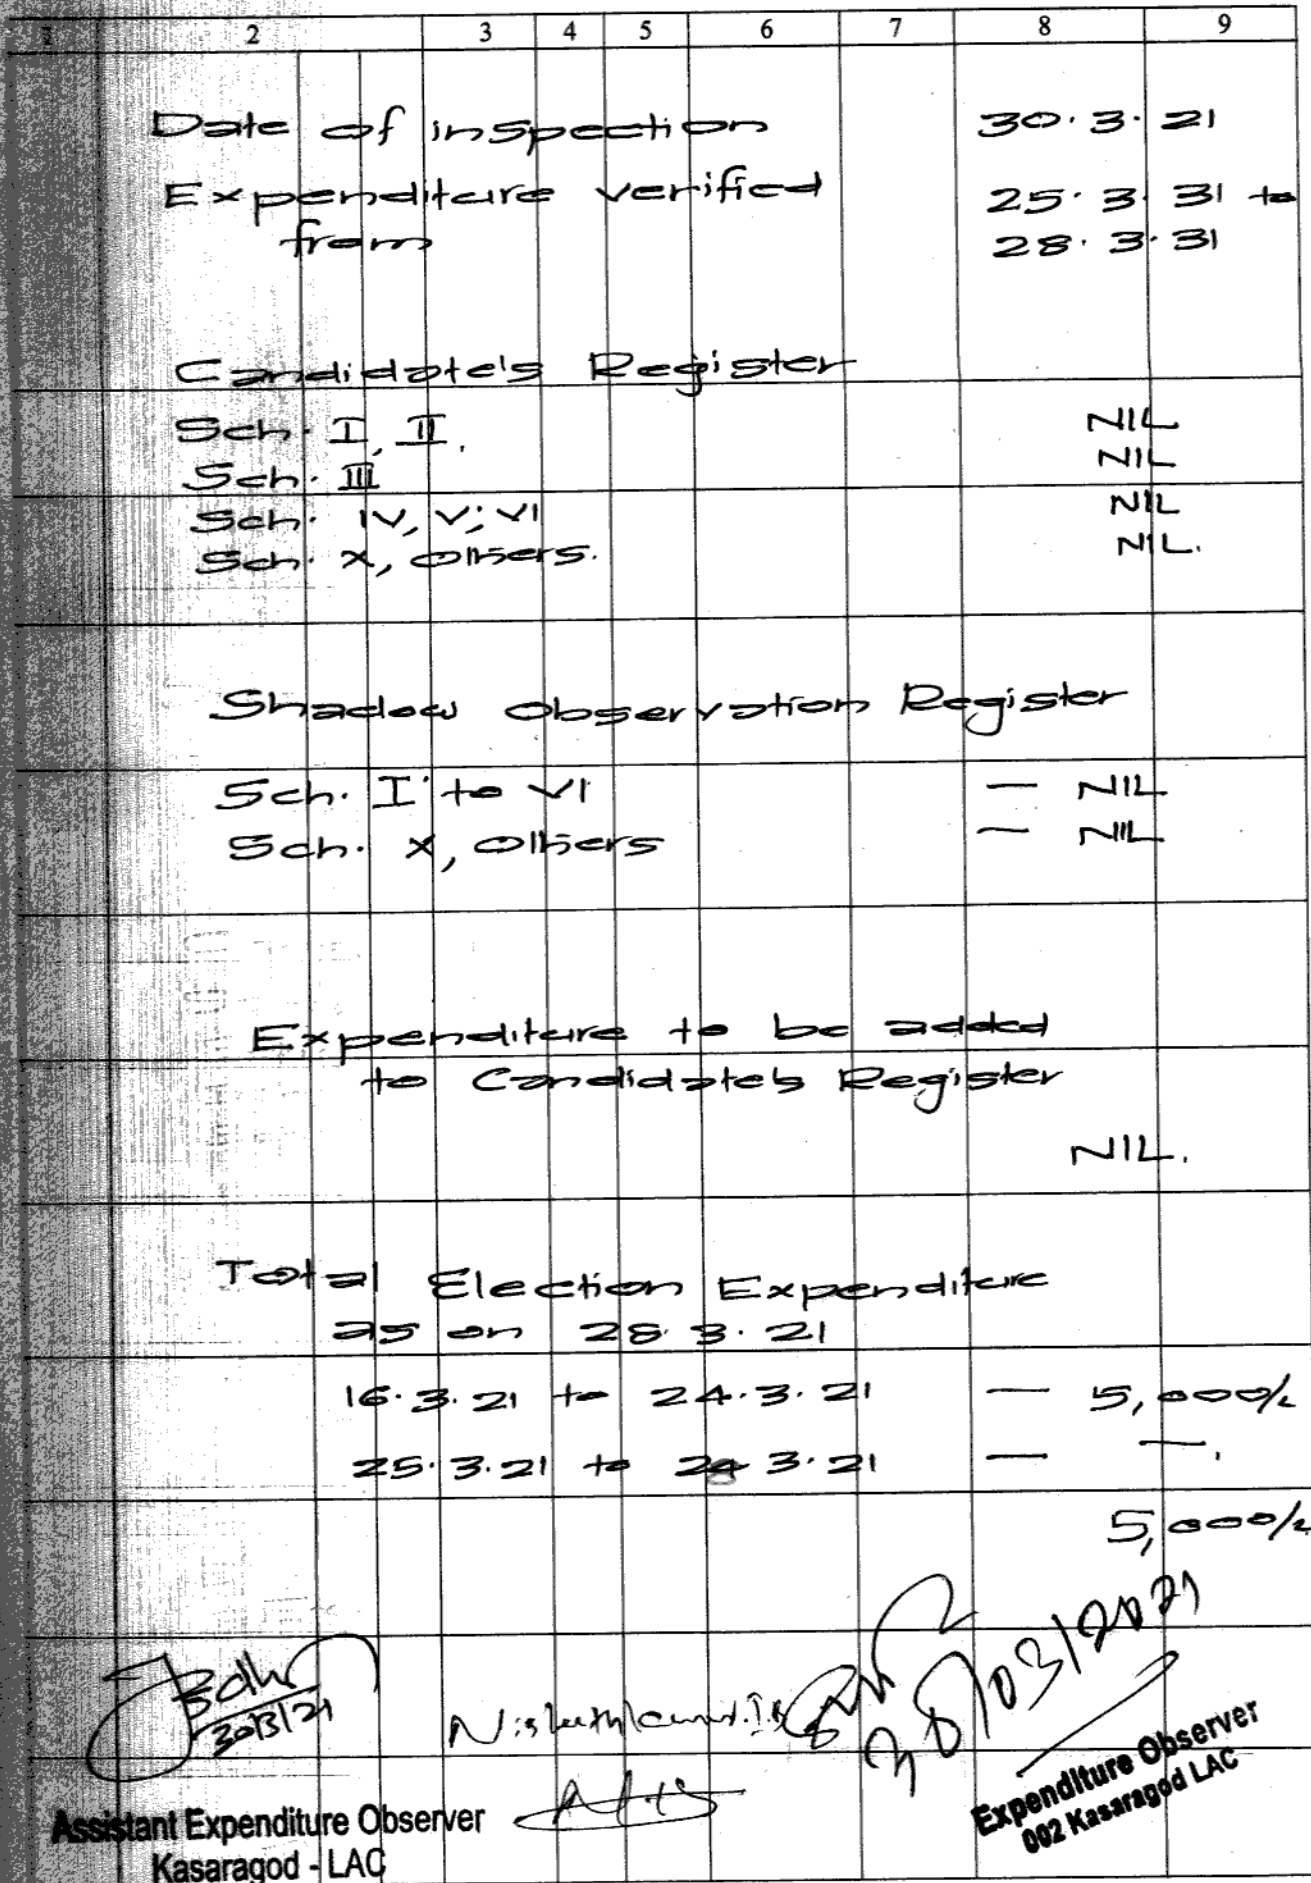 1 2 3 4 5 6 7 8 9
Date of inspection 30.3.21
Expenditure verified 25.3.31 to
from 28.3.31
Candidate's Register
Sch. I, II. NIL
Sch. III NIL
Sch. IV, V, VI NIL
Sch. X, Others. NIL.
Shadow Observation Register
Sch. I to VI — NIL
Sch. X, Others — NIL
Expenditure to be added
to Candidate's Register
NIL.
Total Election Expenditure
as on 28.3.21
16.3.21 to 24.3.21 — 5,000/-
25.3.21 to 28 3.21 — —.
5,000/-
30/3/21
30/03/2021
Assistant Expenditure Observer
Kasaragod - LAC
Expenditure Observer
002 Kasaragod LAC